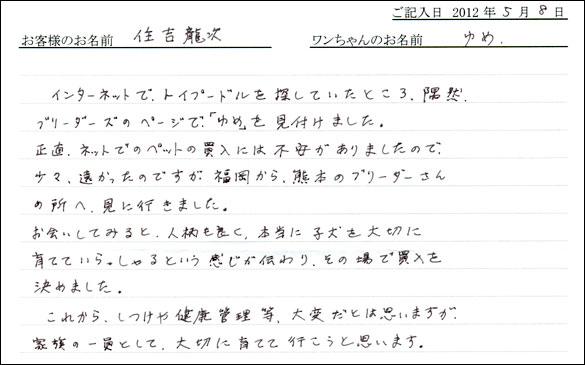 ご記入日 2012年5月8日
お客様のお名前 住吉龍次 ワンちゃんのお名前 ゆめ.
インターネットで、トイプードルを探していたところ、隅然、
ブリーダーズのページで、「ゆめ」を見付けました。
正直、ネットでのペットの買入には不安がありましたので、
少々、遠かったのですが、福岡から、熊本のブリーダーさん
の所へ、見に行きました。
お会いしてみると、人柄も良く、本当に子犬を大切に
育てていらっしゃるという感じが伝わり、その場で買入を
決めました。
これから、しつけや健康管理等、大変だとは思いますが、
家族の一員として、大切に育てて行こうと思います。